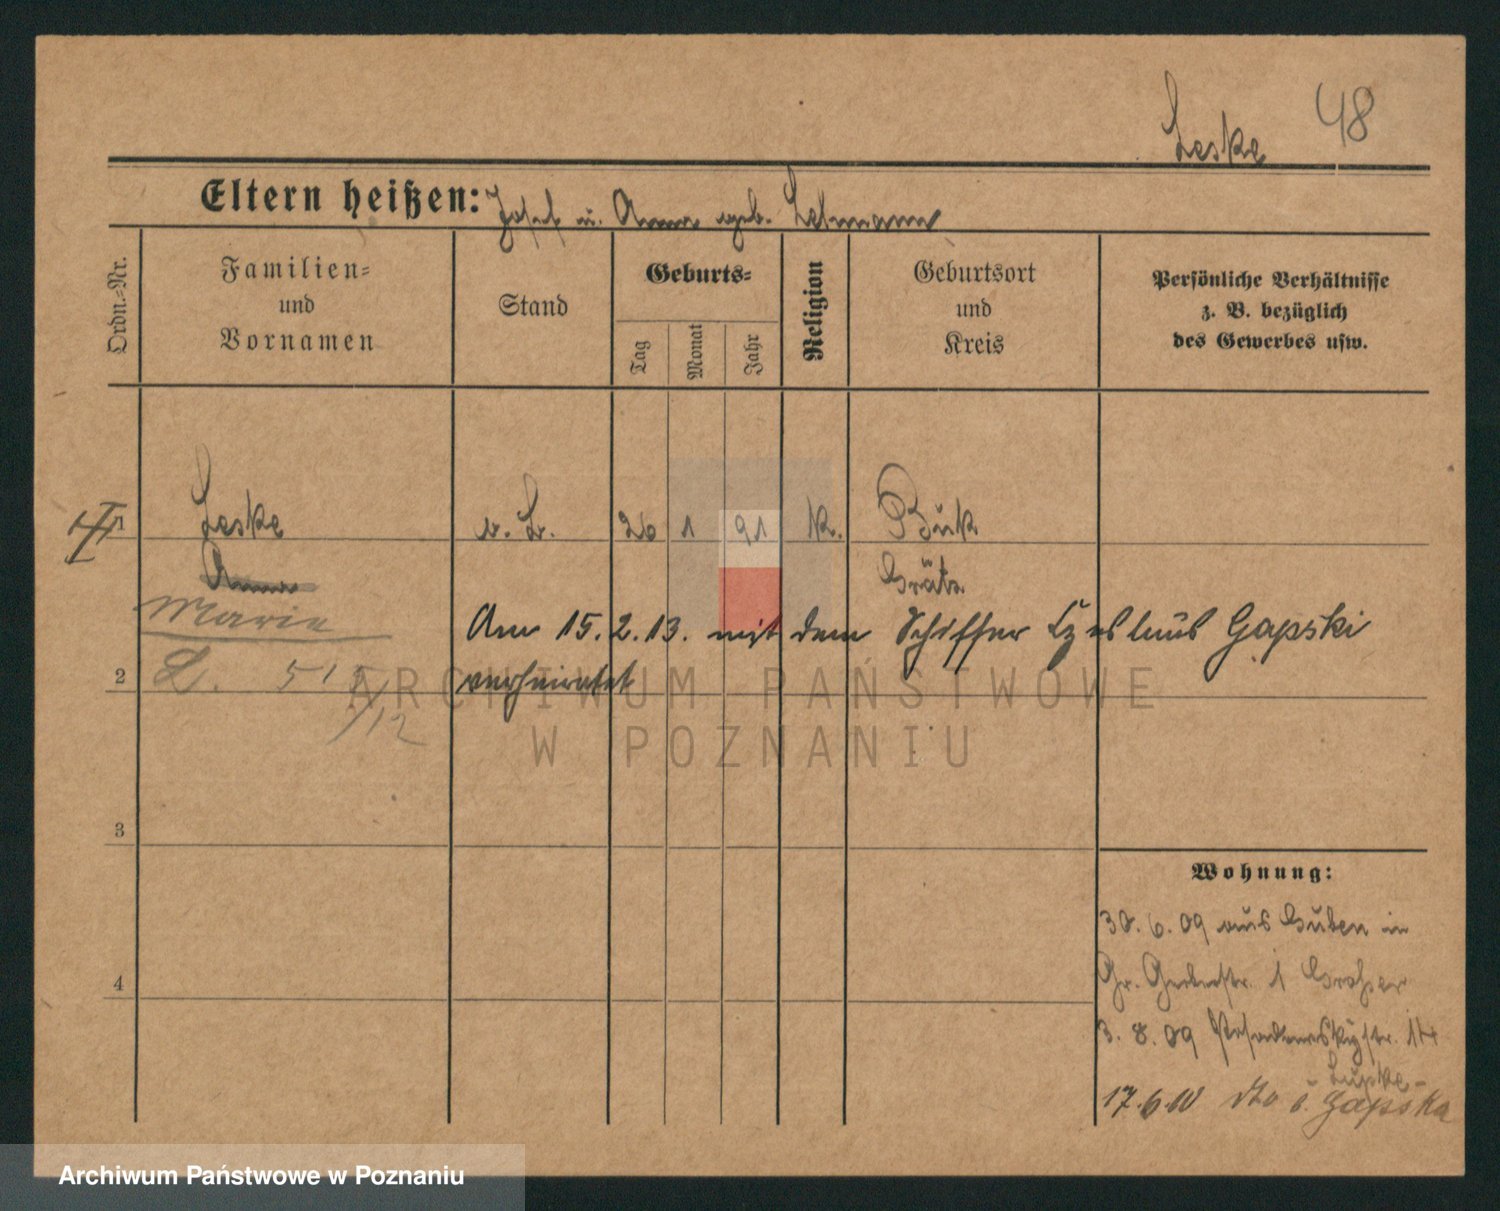 Leske 48
Eltern heißen: Josef u. Anna geb. Lehmann
Ordn.-Nr.
Familien-
und
Vornamen
Stand
Geburts-
Tag
Monat
Jahr
Religion
Geburtsort
und
Kreis
Persönliche Verhältnisse
z. B. bezüglich
des Gewerbes usw.
1 Leske 26 1 91 k. Buk
Anna Grätz
Marie
Am 15. 2. 13. mit dem Schiffer Gapski
2 L.
verheiratet
/12
ARCHIWUM PAŃSTWOWE
W POZNANIU
3
4
Wohnung:
30. 6. 09 aus Guben in
Gr. Gerberstr. 1
3. 8. 09 14
17. 6. 10 dto b. Gapska
Archiwum Państwowe w Poznaniu